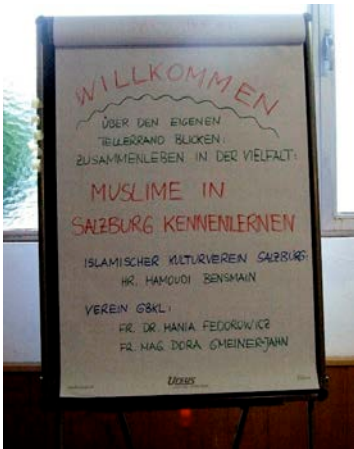 WILLKOMMEN
ÜBER DEN EIGENEN
TELLERRAND BLICKEN:
ZUSAMMENLEBEN IN DER VIELFALT:
MUSLIME IN
SALZBURG KENNENLERNEN
ISLAMISCHER KULTURVEREIN SALZBURG:
HR. HAMOUDI BENSMAIN
VEREIN GBKL:
FR. DR. HANIA FEDOROWICZ
FR. MAG. DORA GMEINER-JAHN